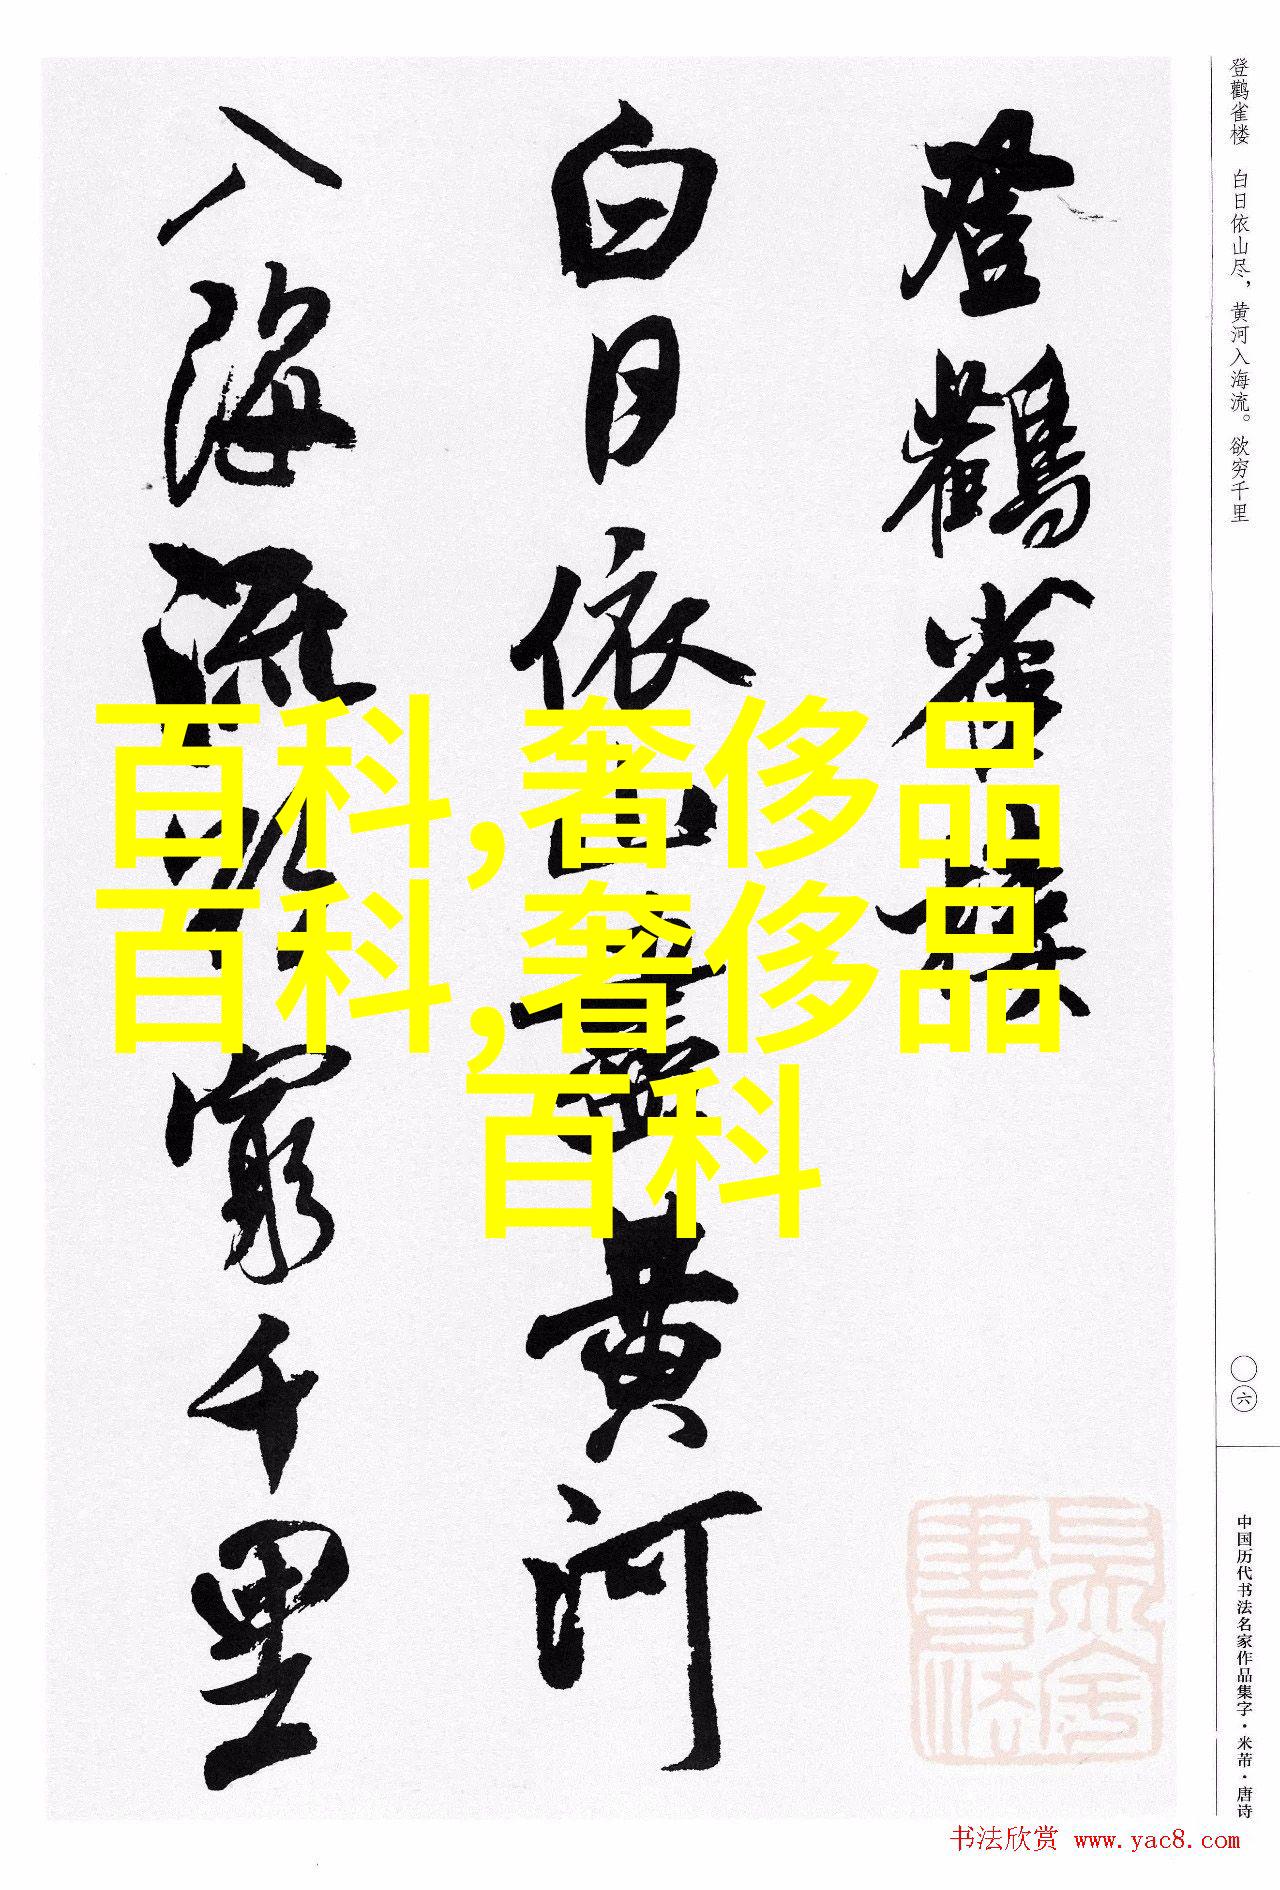 登鹳雀楼
白日依山尽黄河
入海流欲穷千里
百科,奢侈品
百科,奢侈品
百科
登鹳雀楼 白日依山尽,黄河入海流。欲穷千里
〇六
中国历代书法名家作品集字·米芾·唐诗
书法欣赏 www.yac8.com